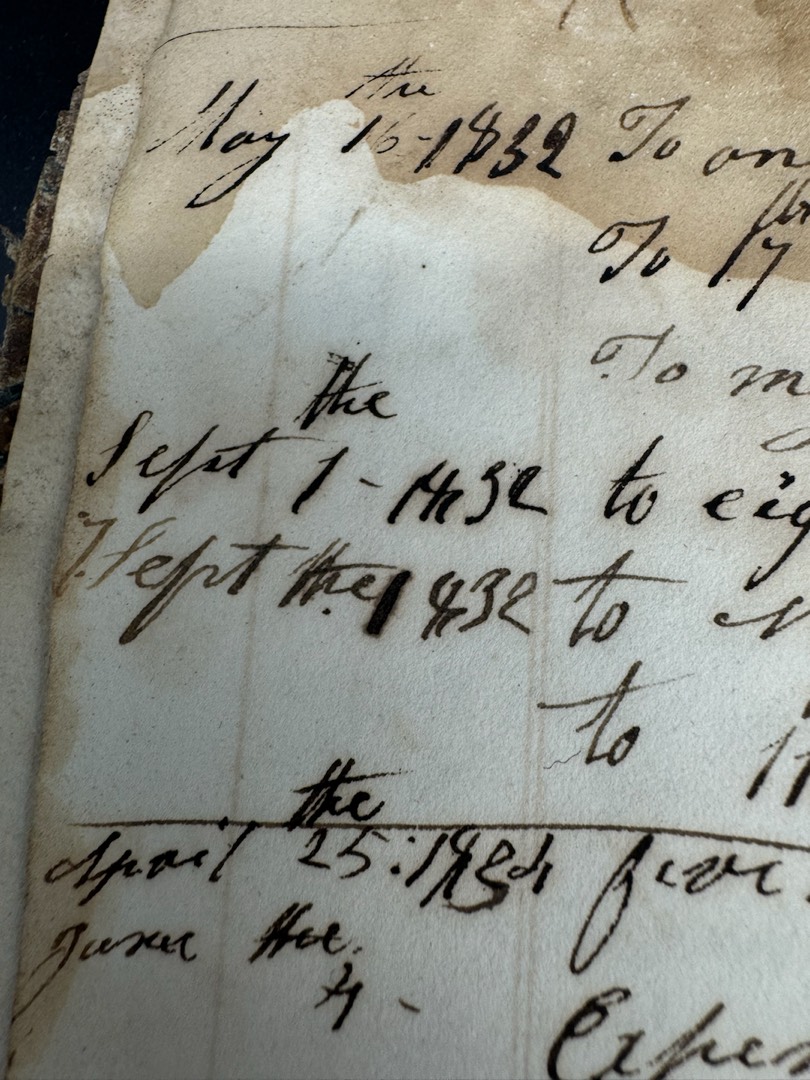 the
May 16-1832 To on
To 17
To m
the
Sept 1-1832 to eig
7 Sept the 1832 to
to
the
April 25:1834 five
June the
4 -
Expen